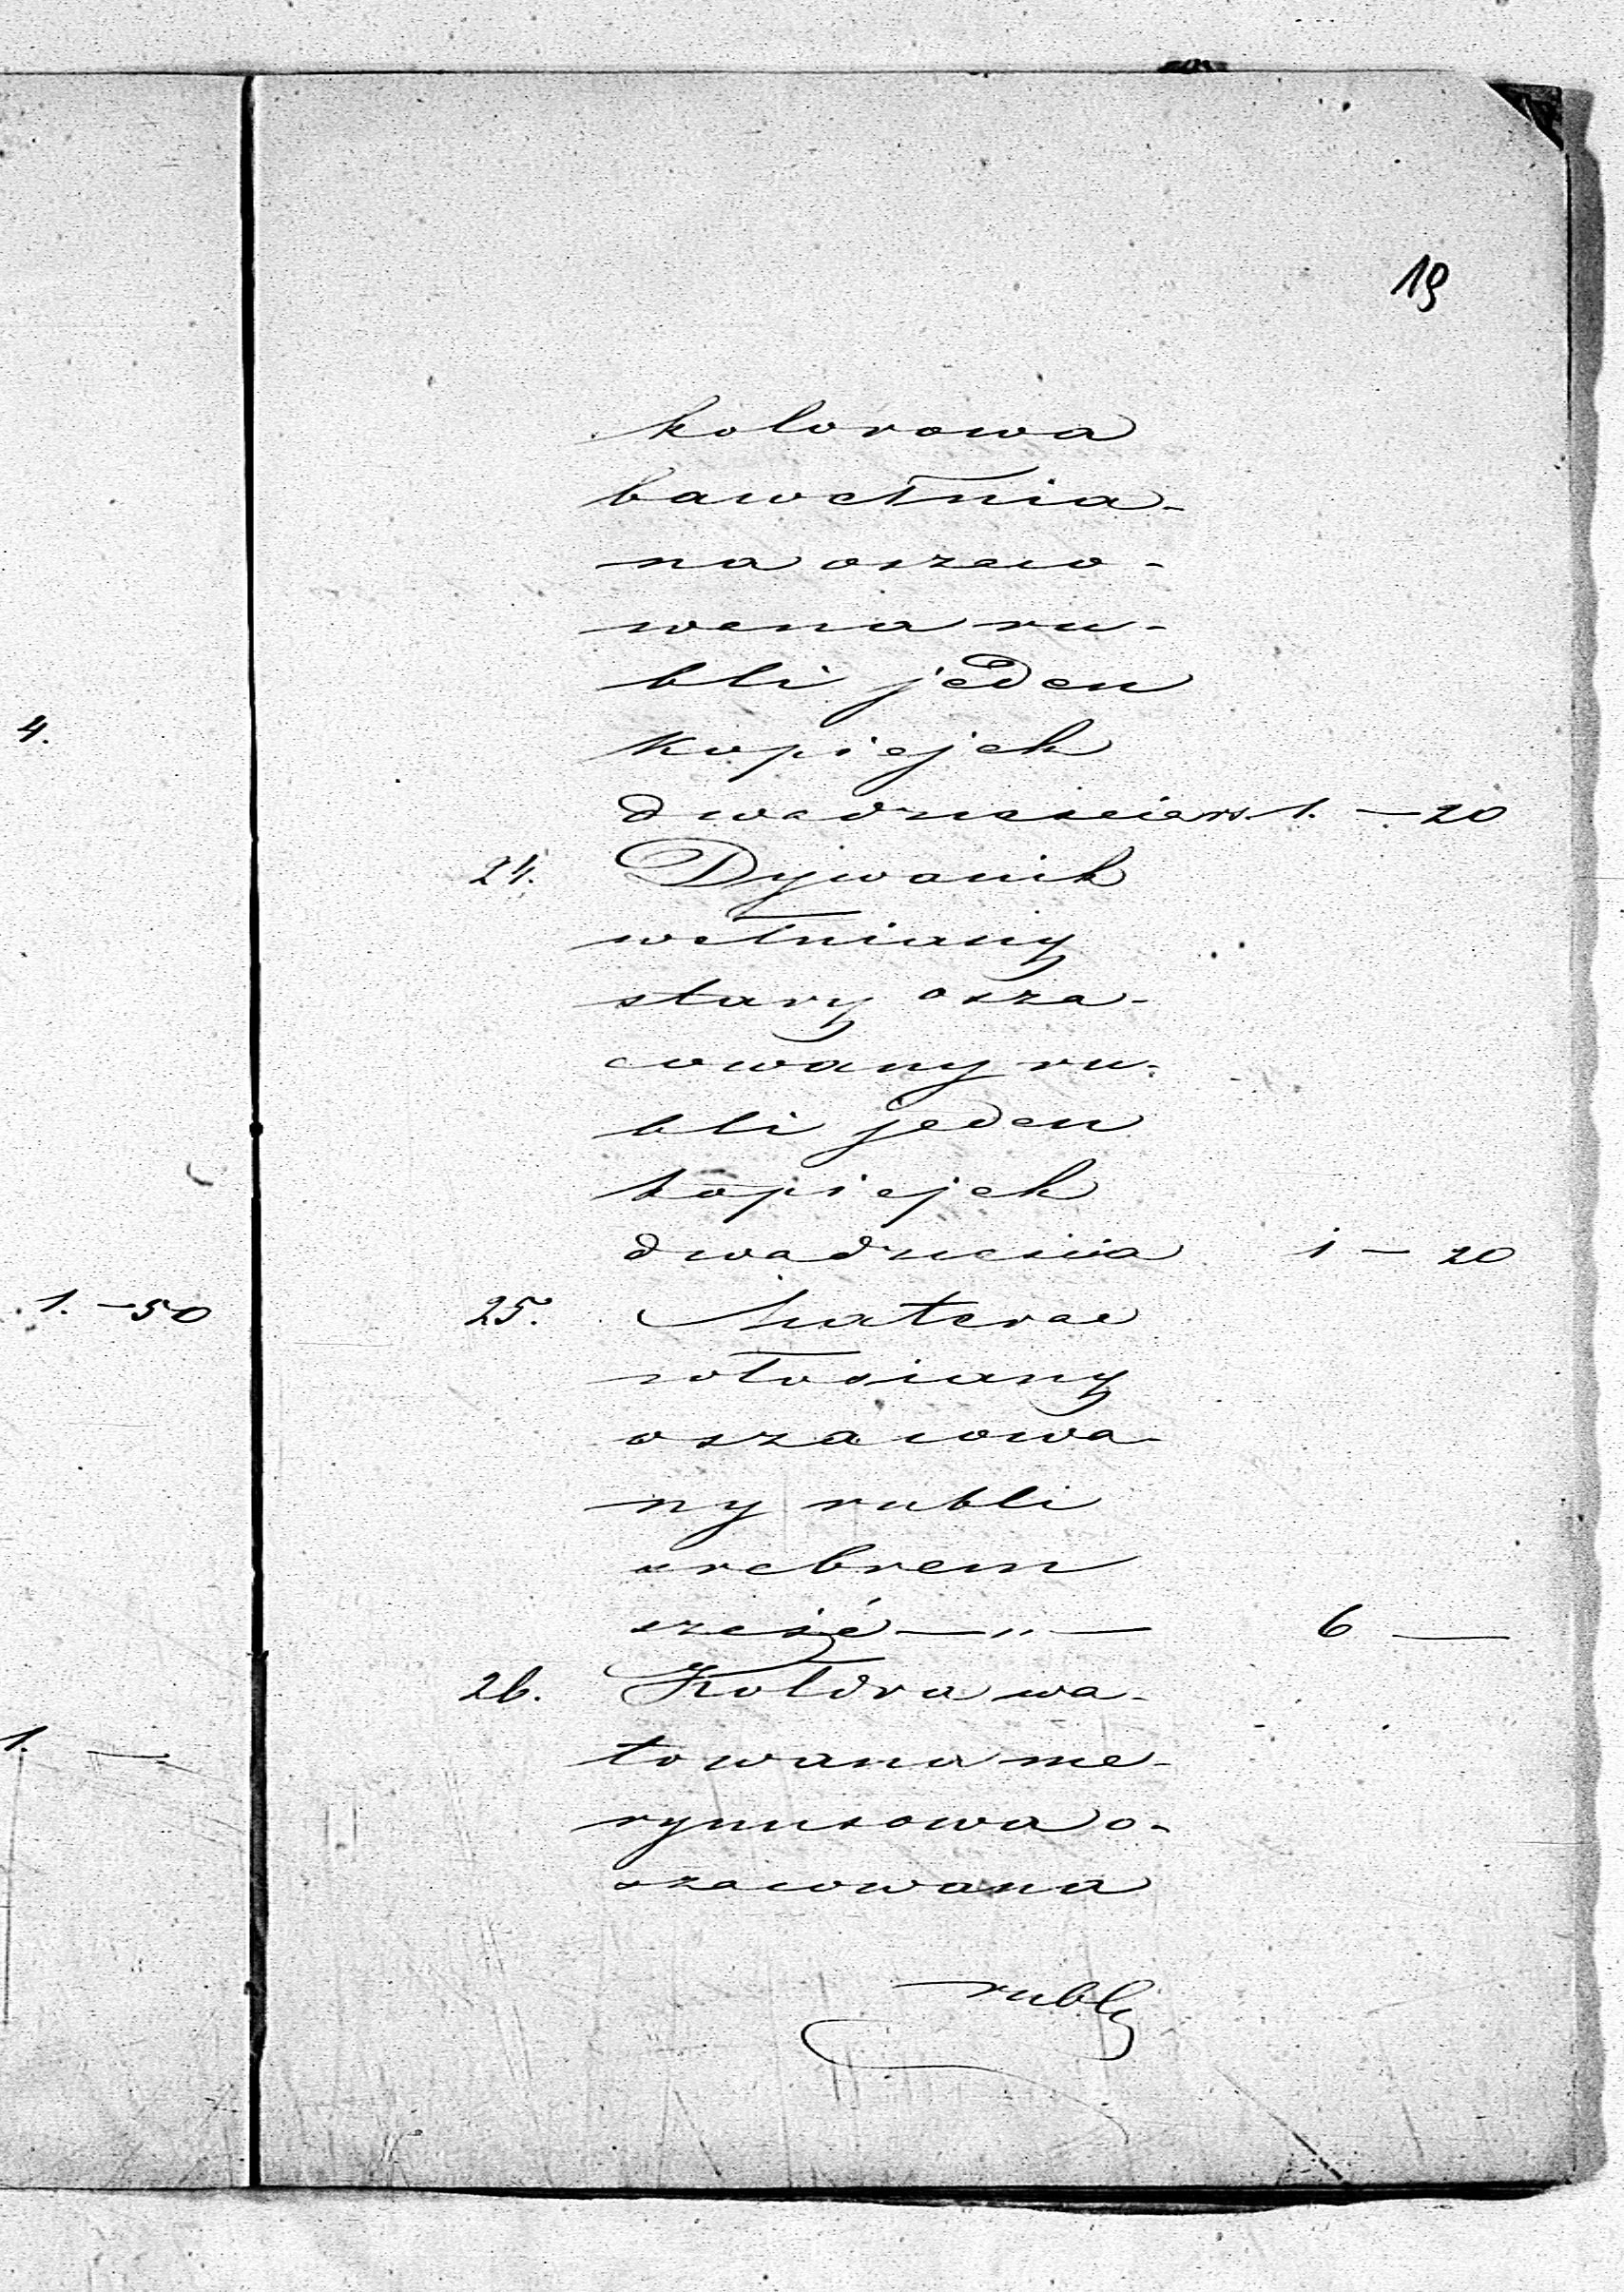 19
kolorowa
bawełnia-
na oszaco-
wana ru-
bli jeden
kopiejek
dwadzieścia rs. 1. — 20
24. Dywanik
wełniany
stary osza-
cowany ru-
bli jeden
kopiejek
dwadzieścia 1 — 20
25. Materac
włosiany
oszacowa-
ny rubli
srebrem
sześć — „ — 6 —
26. Kołdra wa-
towana me-
rynusowa o-
szacowana
rubli
4.
1. — 50
1. —